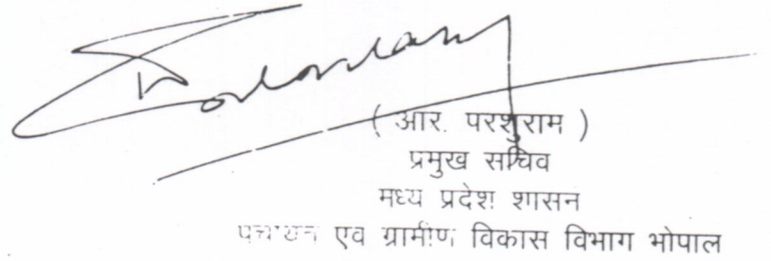 ( आर. परशुराम )
प्रमुख सचिव
मध्य प्रदेश शासन
एवं ग्रामीण विकास विभाग भोपाल